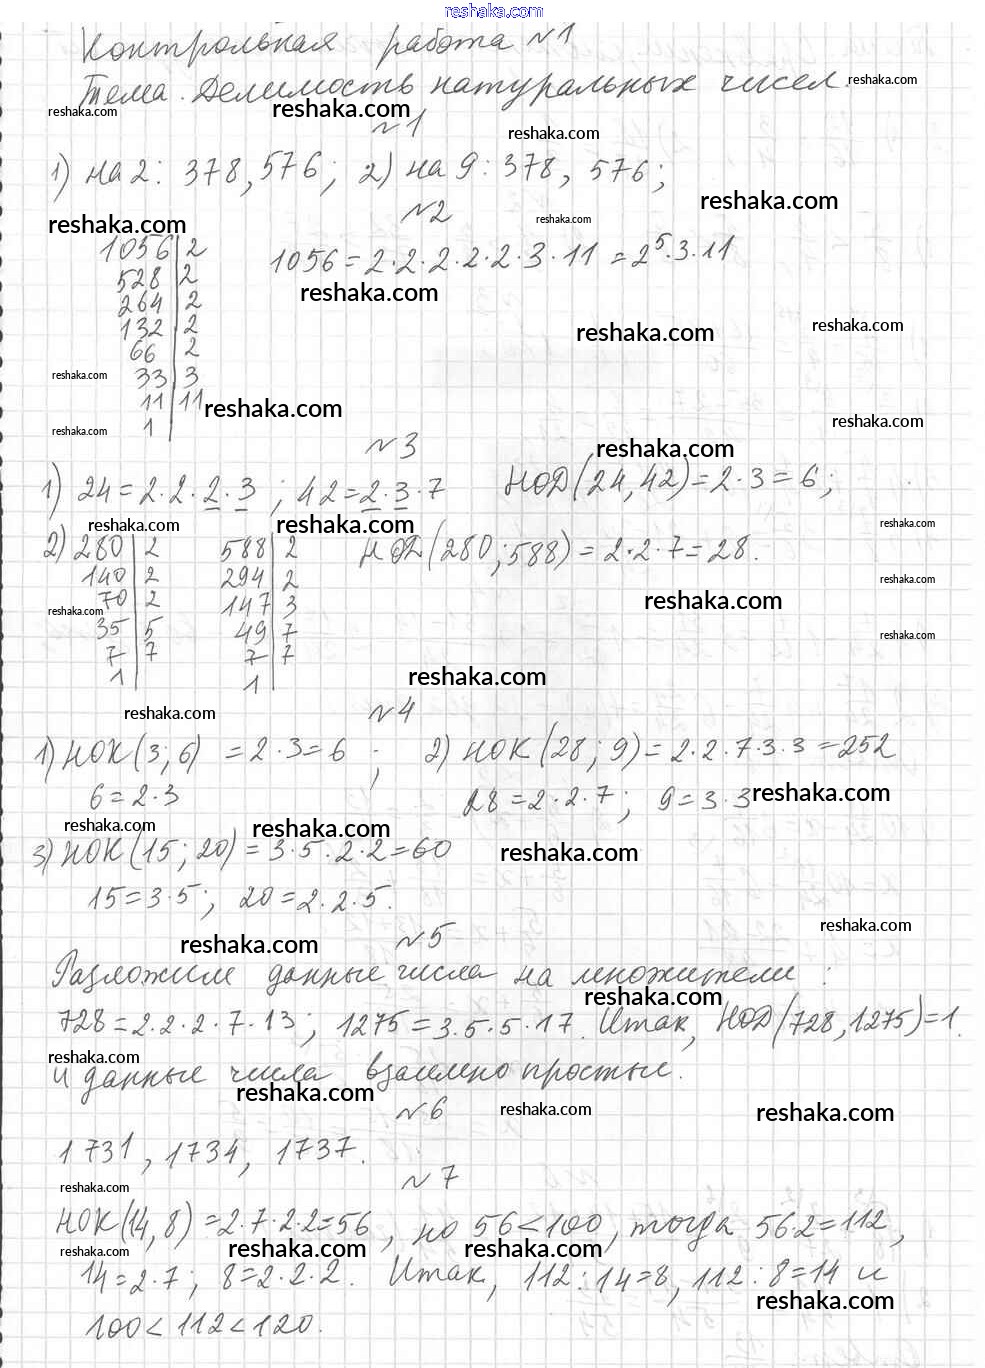 reshaka.com
Контрольная работа №1
Тема. Делимость натуральных чисел.
reshaka.com
reshaka.com
reshaka.com
№1
reshaka.com
1) на 2: 378, 576; 2) на 9: 378, 576;
reshaka.com
№2
reshaka.com
reshaka.com
1056 | 2
1056 = 2·2·2·2·2·3·11 = 2⁵·3·11
528 | 2
reshaka.com
264 | 2
132 | 2
reshaka.com
reshaka.com
66 | 2
33 | 3
reshaka.com
11 | 11
reshaka.com
reshaka.com
1
reshaka.com
№3
reshaka.com
1) 24 = 2·2·2·3 ; 42 = 2·3·7 НОД(24,42) = 2·3 = 6;
reshaka.com
reshaka.com
reshaka.com
2) 280 | 2 588 | 2 НОД(280; 588) = 2·2·7 = 28.
140 | 2 294 | 2
reshaka.com
70 | 2 147 | 3
reshaka.com
reshaka.com
35 | 5 49 | 7
reshaka.com
7 | 7 7 | 7
1 1
reshaka.com
reshaka.com
№4
1) НОК(3; 6) = 2·3 = 6 ; 2) НОК(28; 9) = 2·2·7·3·3 = 252
6 = 2·3 28 = 2·2·7; 9 = 3·3
reshaka.com
reshaka.com
reshaka.com
3) НОК(15; 20) = 3·5·2·2 = 60
reshaka.com
15 = 3·5; 20 = 2·2·5.
reshaka.com
reshaka.com
№5
Разложим данные числа на множители:
reshaka.com
728 = 2·2·2·7·13; 1275 = 3·5·5·17. Итак, НОД(728, 1275) = 1.
reshaka.com
и данные числа взаимно простые.
reshaka.com
№6
reshaka.com
reshaka.com
1731, 1734, 1737.
№7
reshaka.com
НОК(14, 8) = 2·7·2·2 = 56, но 56 < 100, тогда 56·2 = 112,
reshaka.com
reshaka.com
reshaka.com
14 = 2·7; 8 = 2·2·2. Итак, 112 : 14 = 8, 112 : 8 = 14 и
reshaka.com
100 < 112 < 120.